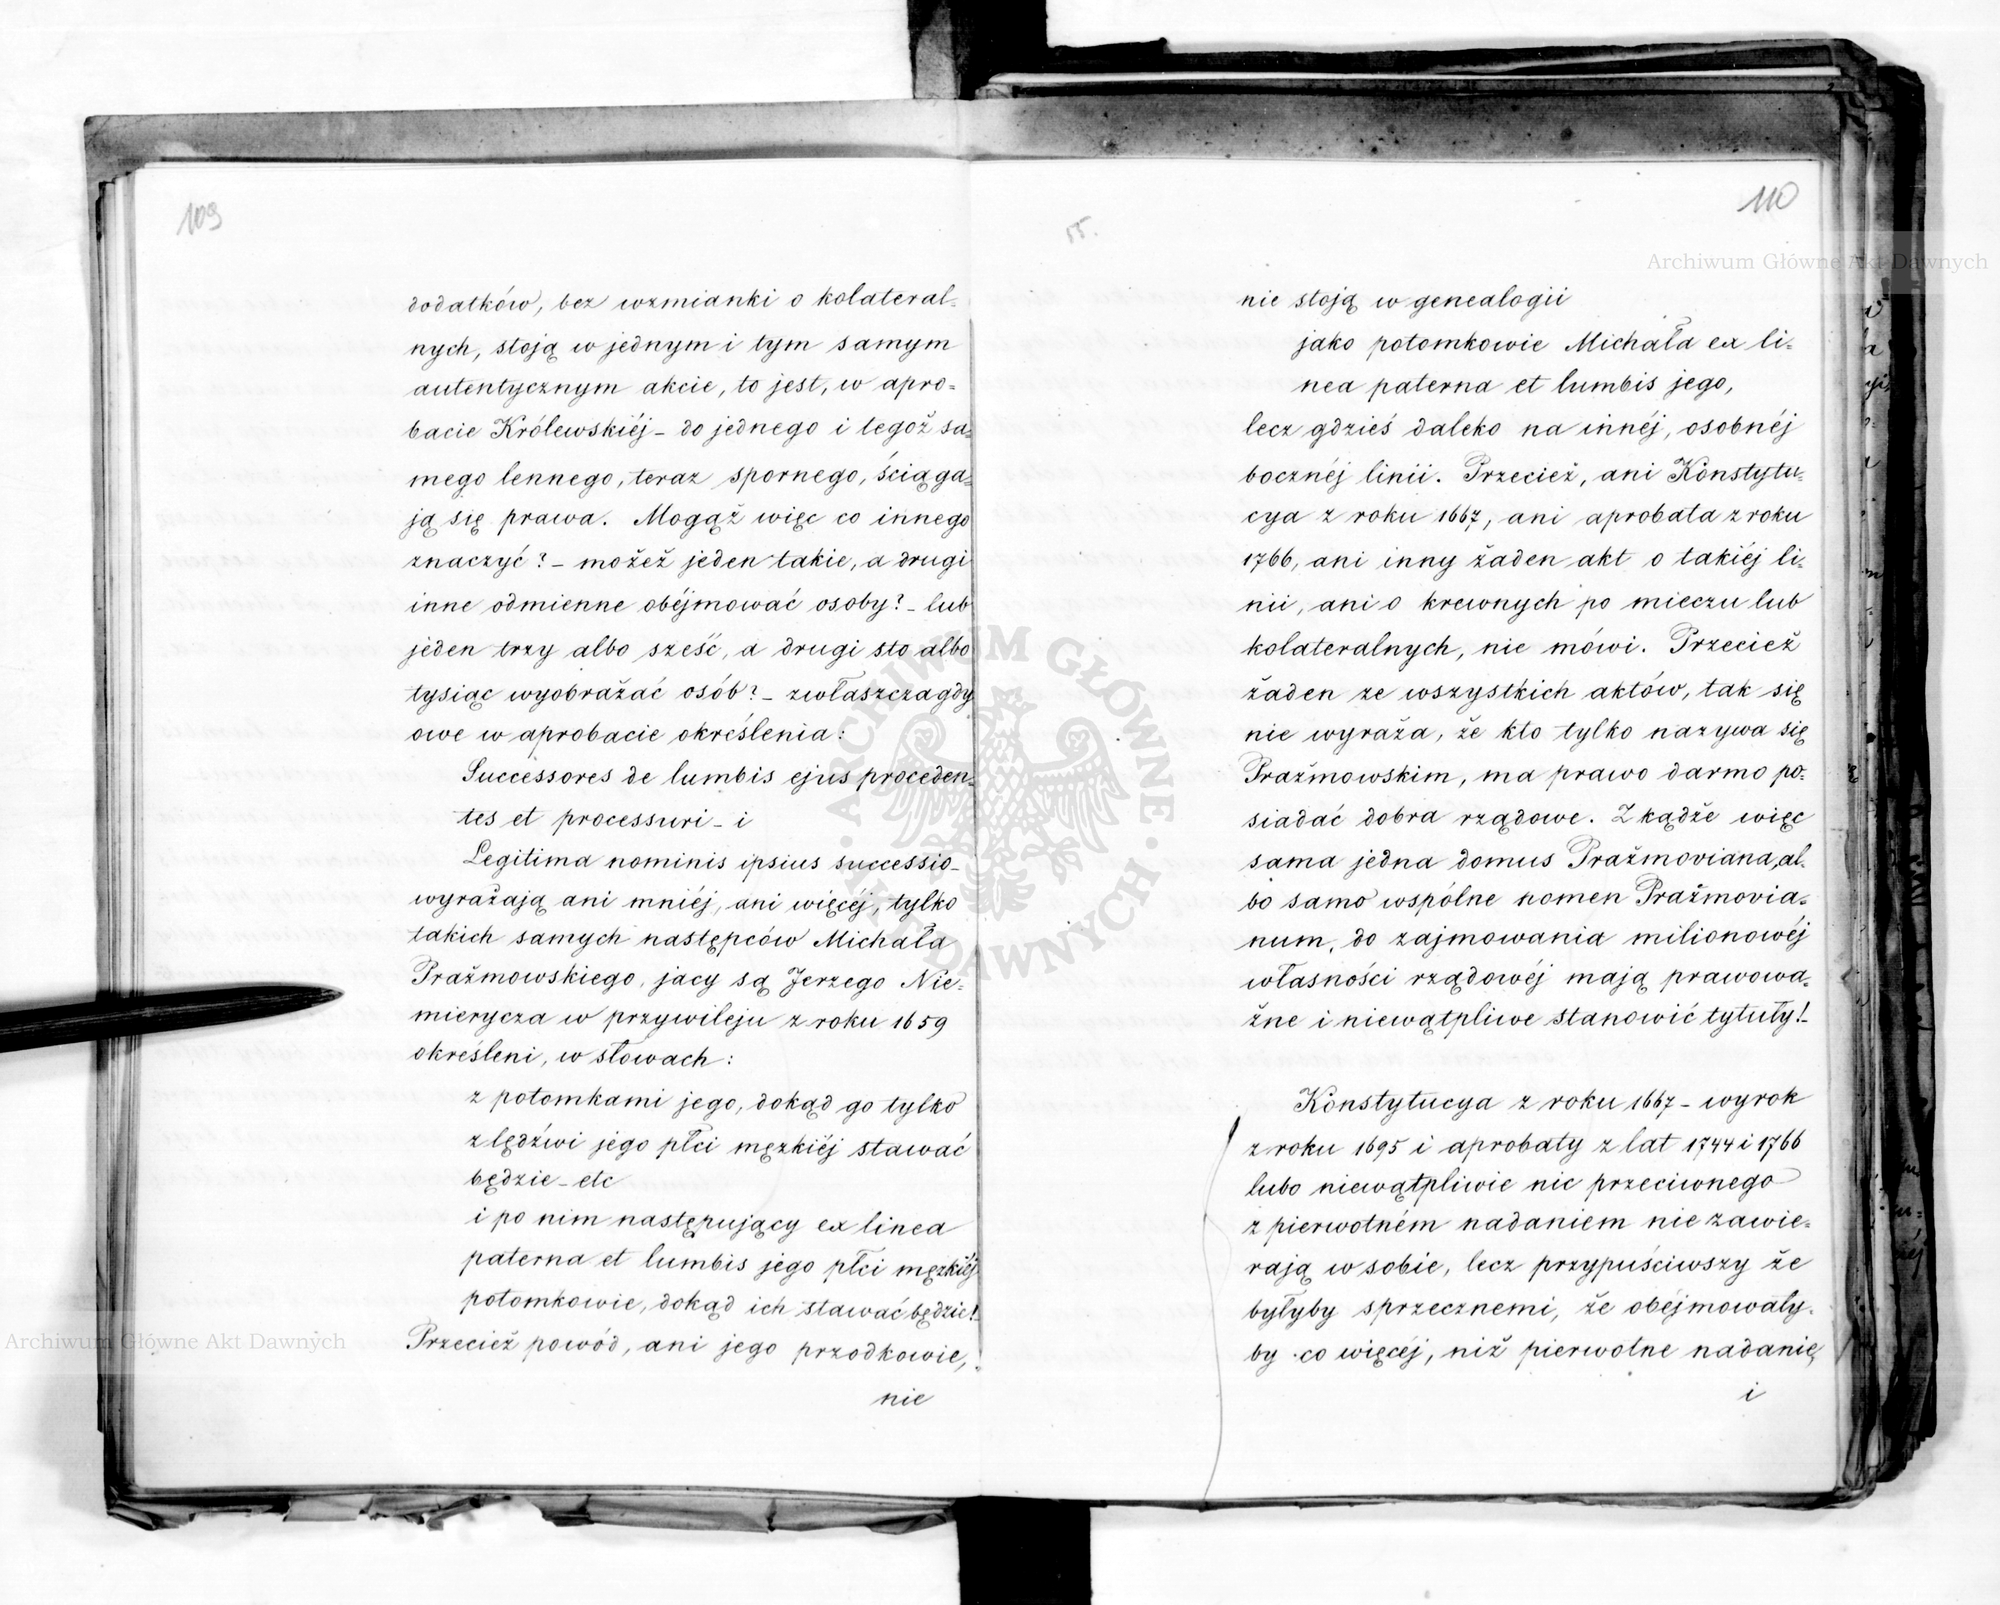 109
dodatków, bez wzmianki o kolateral-
nych, stoją w jednym i tym samym
autentycznym akcie, to jest, w apro-
bacie Królewskiéj – do jednego i tegoż sa-
mego lennego, teraz spornego, ściąga-
ją się prawa. Mogąż więc co innego
znaczyć? – możeż jeden takie, a drugi
inne odmienne obéjmować osoby? – lub
jeden trzy albo sześć, a drugi sto albo
tysiąc wyobrażać osób? – zwłaszcza gdy
owe w aprobacie określenia:
Successores de lumbis ejus proceden-
tes et processuri – i
Legitima nominis ipsius successio –
wyrażają ani mniéj, ani więcéj, tylko
takich samych następców Michała
Prażmowskiego, jacy są Jerzego Nie-
mierycza w przywileju z roku 1659
określeni, w słowach:
z potomkami jego, dokąd go tylko
z lędźwi jego płci męzkiéj stawać
będzie – etc
i po nim następujący ex linea
paterna et lumbis jego płci męzkiéj
potomkowie, dokąd ich stawać będzie! –
Przecież powód, ani jego przodkowie,
nie
55.
110
nie stoją w genealogii
jako potomkowie Michała ex li-
nea paterna et lumbis jego,
lecz gdzieś daleko na innéj, osobnéj
bocznéj linii. Przecież, ani Konstytu-
cya z roku 1667, ani aprobata z roku
1766, ani inny żaden akt o takiéj li-
nii, ani o krewnych po mieczu lub
kolateralnych, nie mówi. Przecież
żaden ze wszystkich aktów, tak się
nie wyraża, że kto tylko nazywa się
Prażmowskim, ma prawo darmo po-
siadać dobra rządowe. Zkądże więc
sama jedna domus Prażmoviana, al-
bo samo wspólne nomen Prażmovia-
num, do zajmowania milionowéj
własności rządowéj mają prawowa-
żne i niewątpliwe stanowić tytuły! –
Konstytucya z roku 1667 – wyrok
z roku 1695 i aprobaty z lat 1744 i 1766
lubo niewątpliwie nic przeciwnego
z pierwotném nadaniem nie zawie-
rają w sobie, lecz przypuściwszy że
byłyby sprzecznemi, że obéjmowały-
by co więcéj, niż pierwotne nadanie,
i
Archiwum Główne Akt Dawnych
ARCHIWUM GŁÓWNE AKT DAWNYCH
Archiwum Główne Akt Dawnych